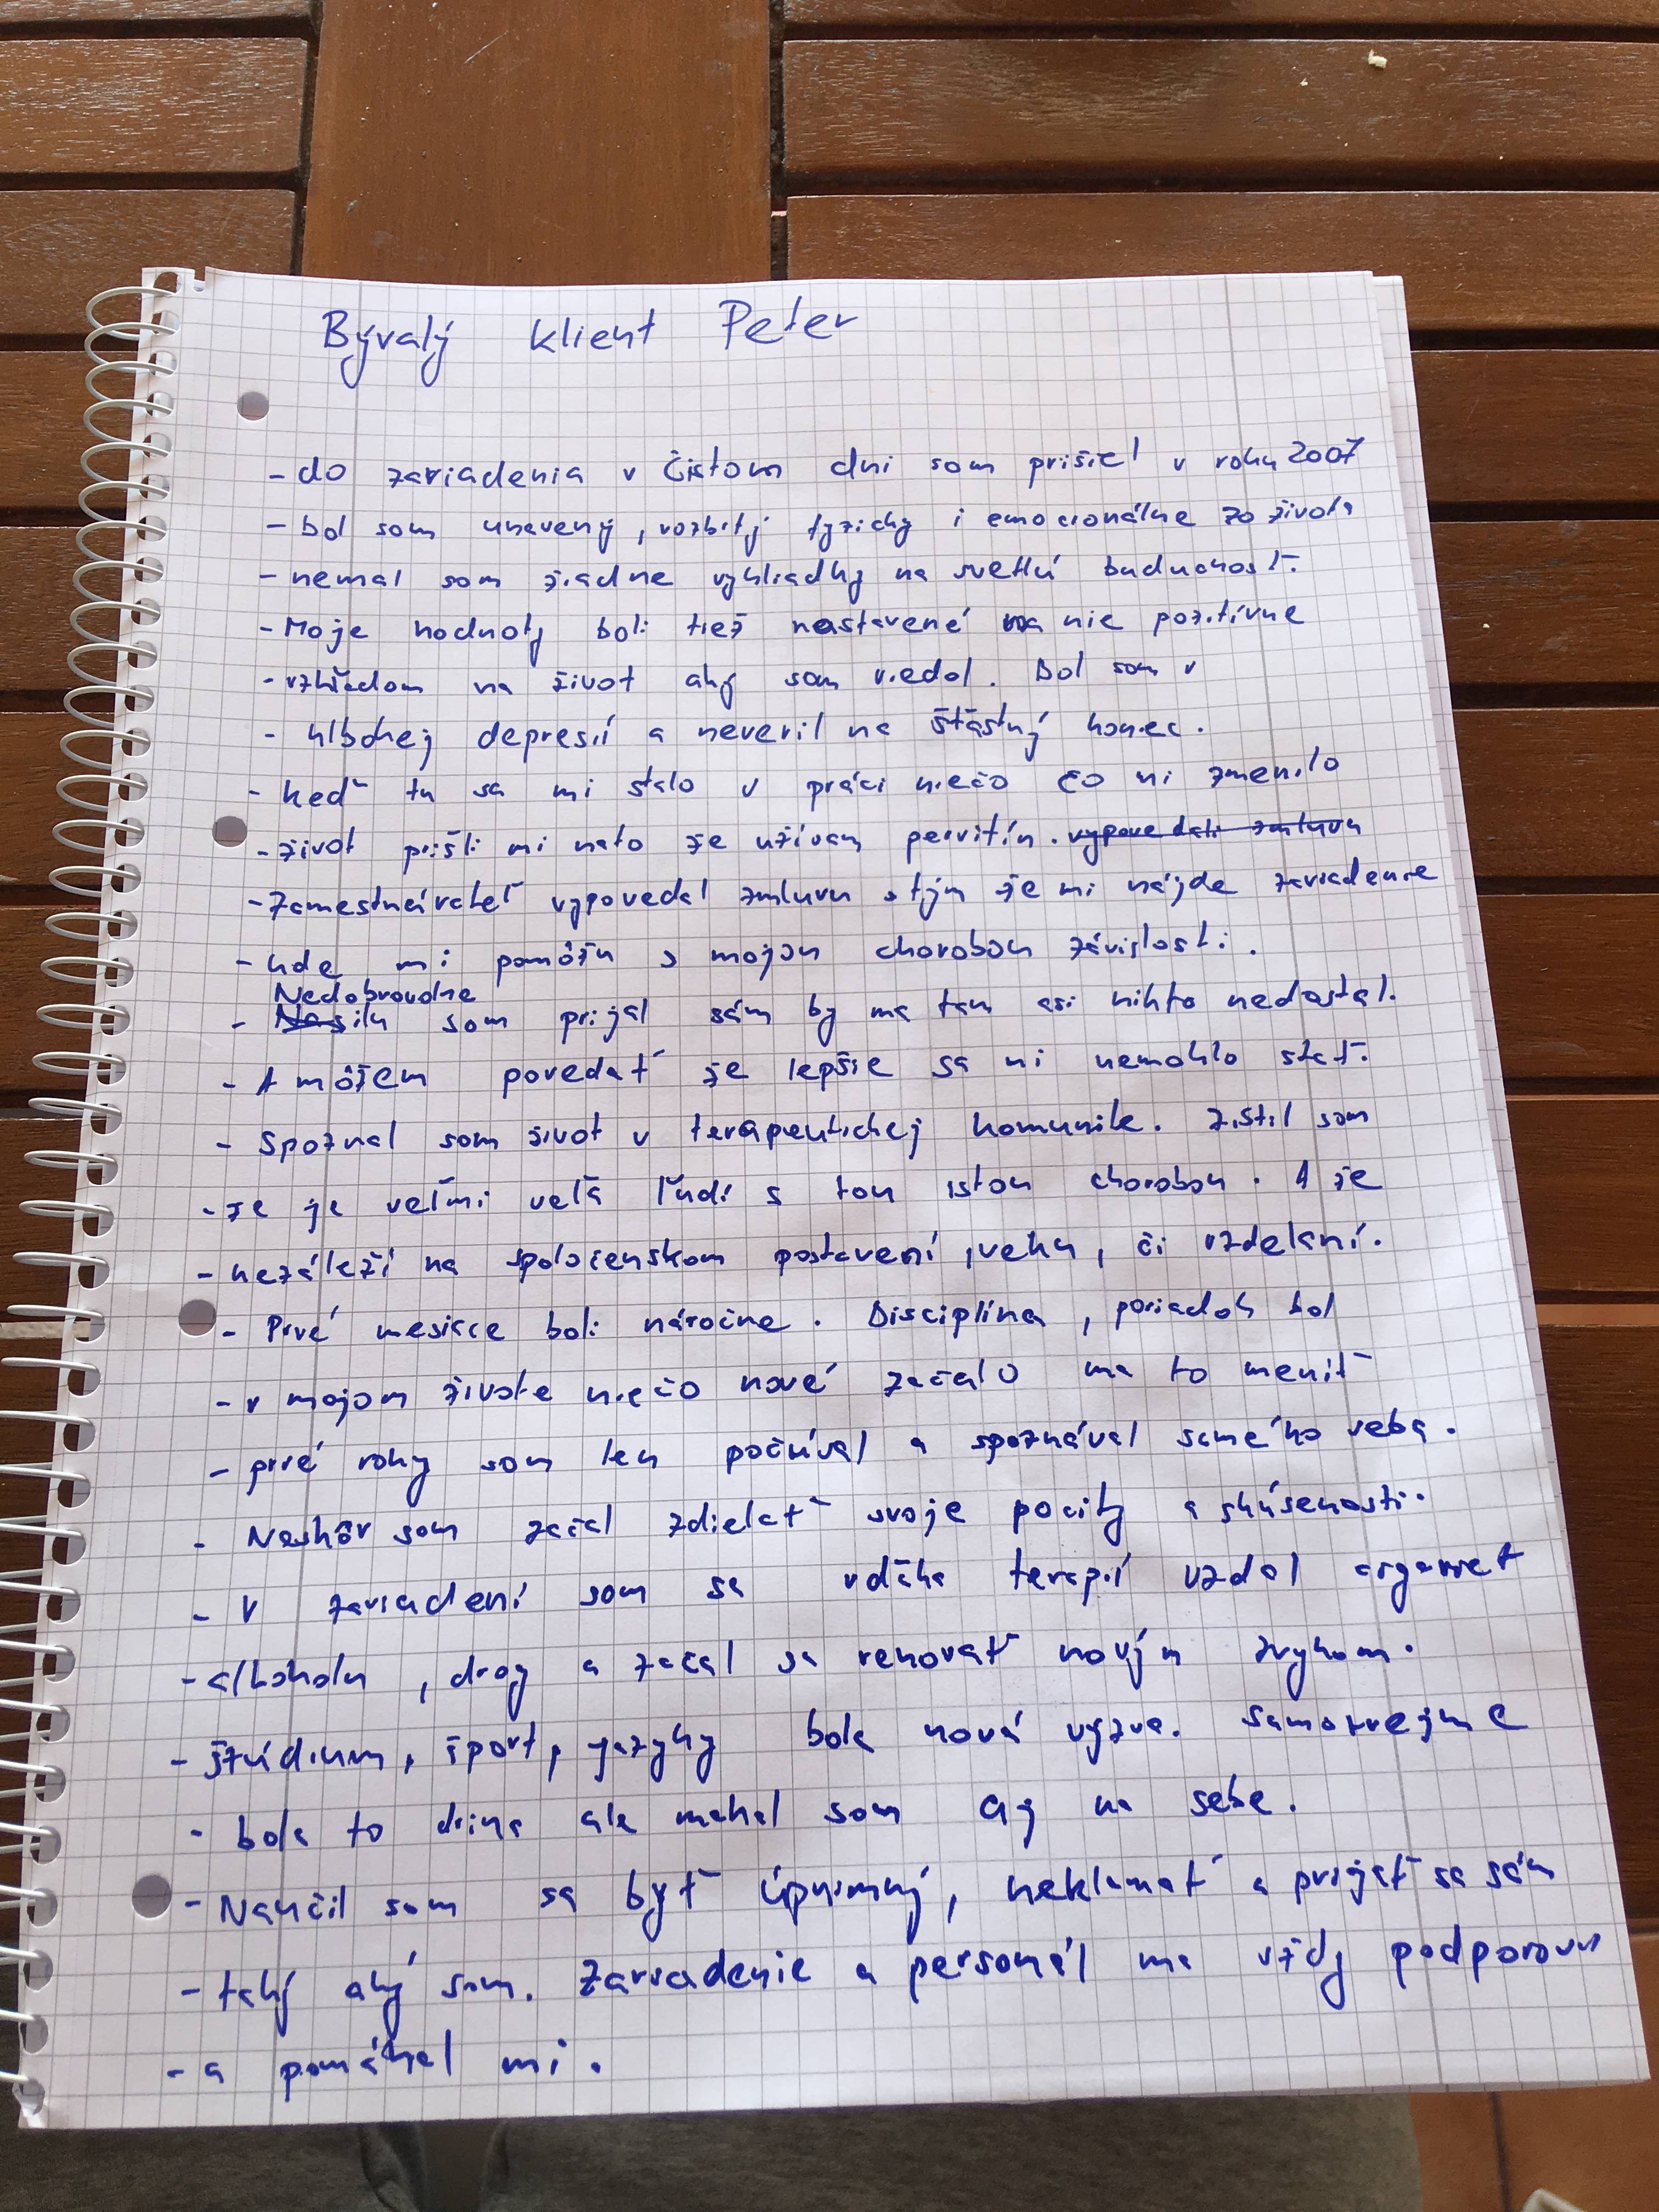 Bývalý klient Peter
- do zariadenia v Čistom dni som prišiel v roku 2007
- bol som unavený, rozbitý fyzicky i emocionálne zo života
- nemal som žiadne vyhliadky na svetlú buducnosť.
- Moje hodnoty boli tiež nastavené nie pozitívne
- vzhľadom na život aký som viedol. Bol som v
- hlbokej depresií a neveril na štastný koniec.
- keď tu sa mi stalo v práci niečo čo mi zmenilo
- život prišli mi nato že užívam pervitín. vypovedali zmluvu
- Zamestnávateľ vypovedal zmluvu s tým že mi nájde zariadenie
- kde mi pomôžu s mojou chorobou závislosti.
Nedobrovolne
- Nasilu som prijal sám by ma tam asi nikto nedostal.
- A môžem povedať že lepšie sa mi nemohlo stať.
- Spoznal som život v terapeutickej komunite. Zistil som
- že je veľmi veľa ľudí s tou istou chorobou. A že
- nezáleží na spoločenskom postavení, veku, či vzdelaní.
- Prvé mesiace boli náročne. Disciplína, poriadok bol
- v mojom živote niečo nové začalo ma to meniť
- prvé roky som len počúval a spoznával samého seba.
- Neskôr som začal zdielať svoje pocity a skúsenosti.
- V zariadení som sa vďaka terapií vzdal cigariet
- alkoholu, drog a začal sa venovať novým zvykom.
- štúdium, šport, jazyky bola nová výzva. Samozrejme
- bola to drina ale makal som aj na sebe.
- Naučil som sa byť úprimný, neklamať a prijať sa sám
- taký aký som. Zariadenie a personál ma vždy
- a pomáhal mi.